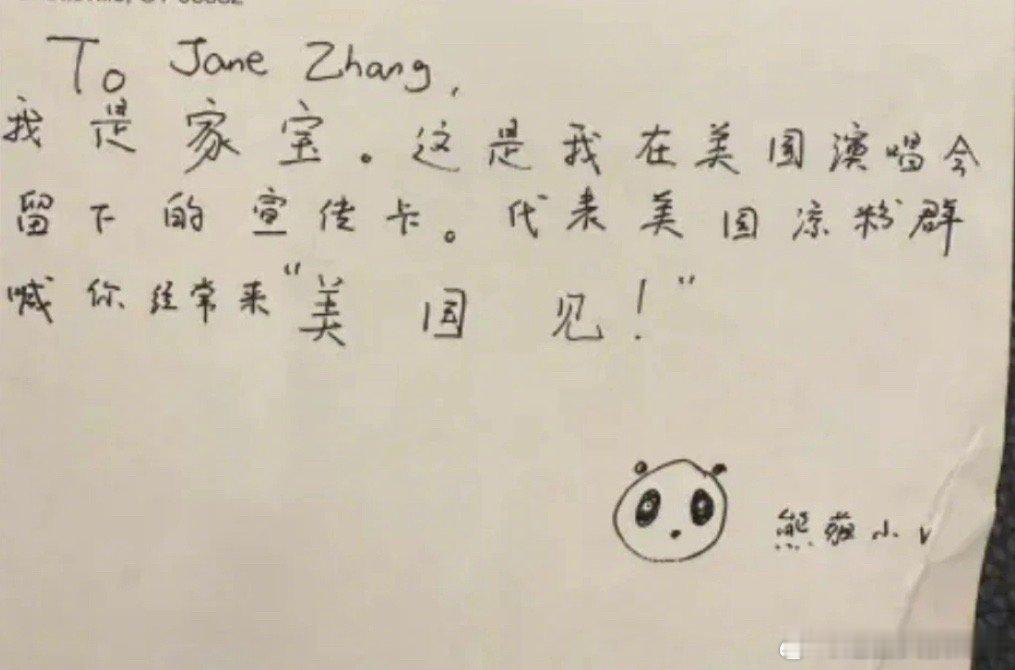 To Jane Zhang,
我是家宝。这是我在美国演唱会
留下的宣传卡。代表美国凉粉群
喊你经常来“美国见！”
熊猫小